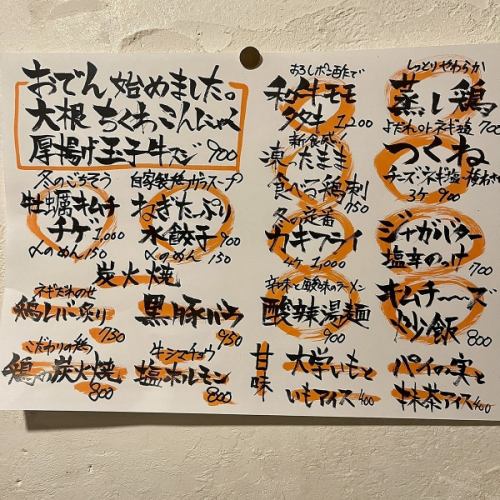 おでん始めました。
大根ちくわこんにゃく
厚揚げ玉子牛スジ 900
冬のごちそう
牡蠣オムチ
チゲ 1,000
〆のめん 150
自家製鶏ガラスープ
ねぎたっぷり
水餃子 700
〆のめん 150
炭火焼
ネギだれのせ
鶏レバー炙り
730
黒豚バラ
950
こだわりの鶏
鶏の炭火焼
800
牛シマチョウ
塩ホルモン
800
おろしポン酢で
和牛モモ
タタキ 1,200
新食感!
凍ったまま
食べる鶏刺
750
冬の定番
カキフライ
4ケ 1,000
辛味と酸味のラーメン
酸辣湯麺
900
しっとりやわらか
蒸し鶏
よだれorネギ塩 700
つくね
チーズ・ネギ塩・
3ケ 900
ジャガバター
塩辛のっけ
700
オムチーズ
炒飯 800
甘味
大学いもと
いもアイス 400
パイの実と
抹茶アイス 400